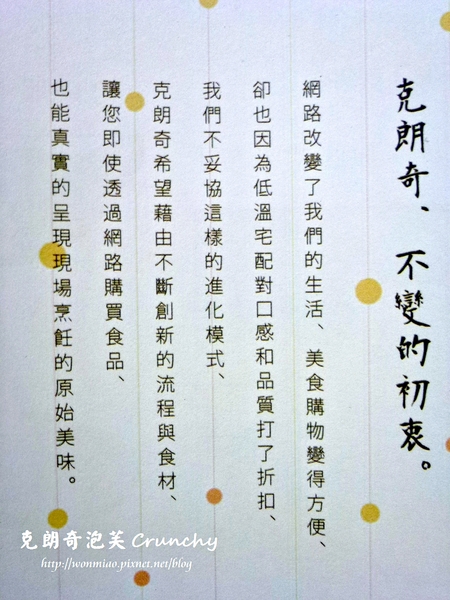 克朗奇、不變的初衷。
網路改變了我們的生活、美食購物變得方便、
卻也因為低溫宅配對口感和品質打了折扣、
我們不妥協這樣的進化模式、
克朗奇希望藉由不斷創新的流程與食材、
讓您即使透過網路購買食品、
也能真實的呈現現場烹飪的原始美味。
克朗奇泡芙 Crunchy
http://wonmiao.pixnet.net/blog